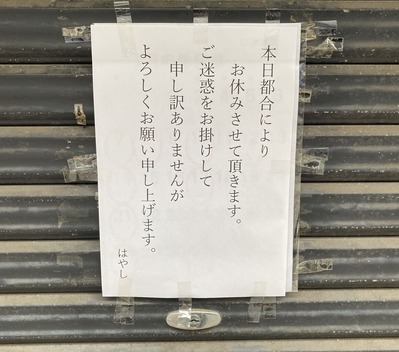 本日都合により
お休みさせて頂きます。
ご迷惑をお掛けして
申し訳ありませんが
よろしくお願い申し上げます。
はやし